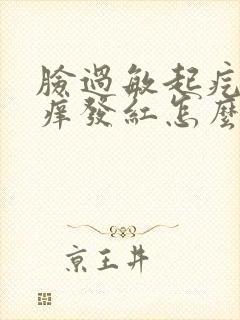 臉過敏起疙
痒發紅怎麼
京王井